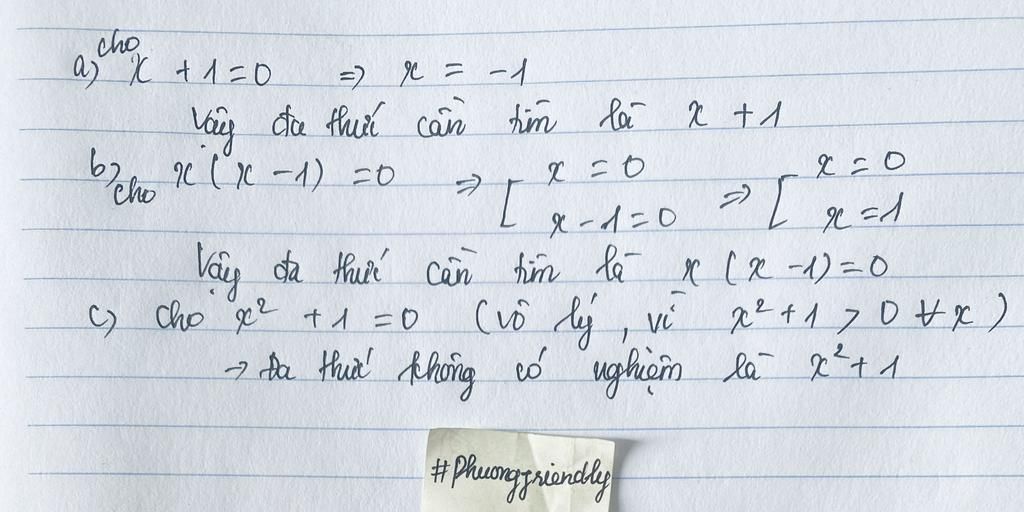 a) cho x + 1 = 0 => x = -1
Vậy đa thức cần tìm là x + 1
b) cho x(x - 1) = 0 => [ x = 0 => [ x = 0
x - 1 = 0 x = 1
Vậy đa thức cần tìm là x (x - 1) = 0
c) cho x² + 1 = 0 (vô lý, vì x² + 1 > 0 ∀ x)
→ Đa thức không có nghiệm là x² + 1
#Phuongfriendly